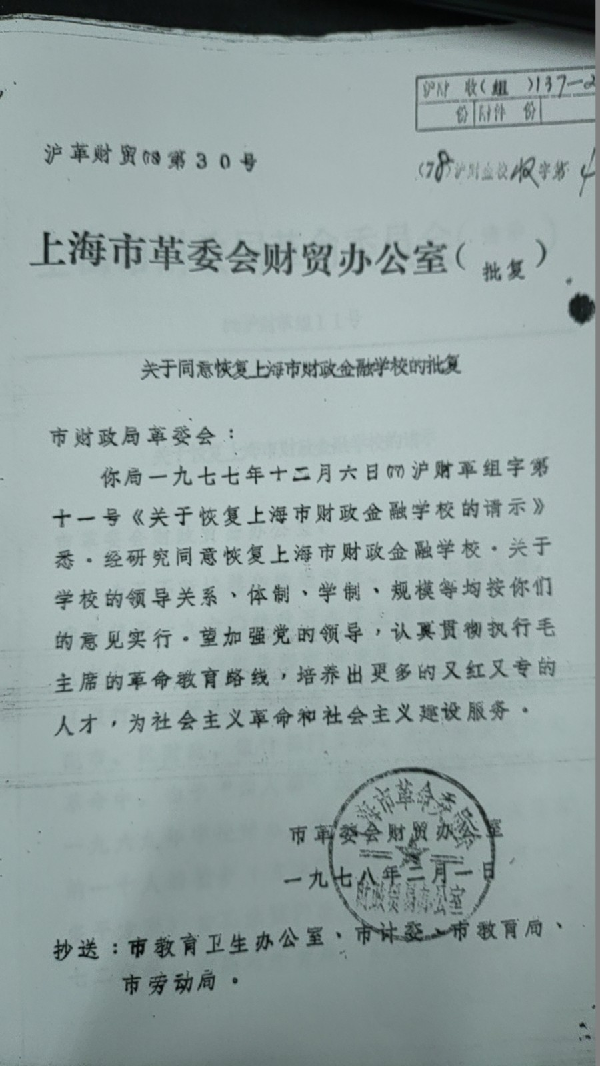 沪财 收(组 )137-2
份 附件 份
沪革财贸(78)第30号
(78)沪财金校收字第4
上海市革委会财贸办公室(批复)
关于同意恢复上海市财政金融学校的批复
市财政局革委会:
你局一九七七年十二月六日(77)沪财革组字第
十一号《关于恢复上海市财政金融学校的请示》
悉.经研究同意恢复上海市财政金融学校.关于
学校的领导关系、体制、学制、规模等均按你们
的意见实行.望加强党的领导,认真贯彻执行毛
主席的革命教育路线,培养出更多的又红又专的
人才,为社会主义革命和社会主义建设服务.
上海市革命委员会
市革委会财贸办公室
一九七八年二月一日
财政贸易办公室
抄送:市教育卫生办公室、市计委、市教育局、
市劳动局.